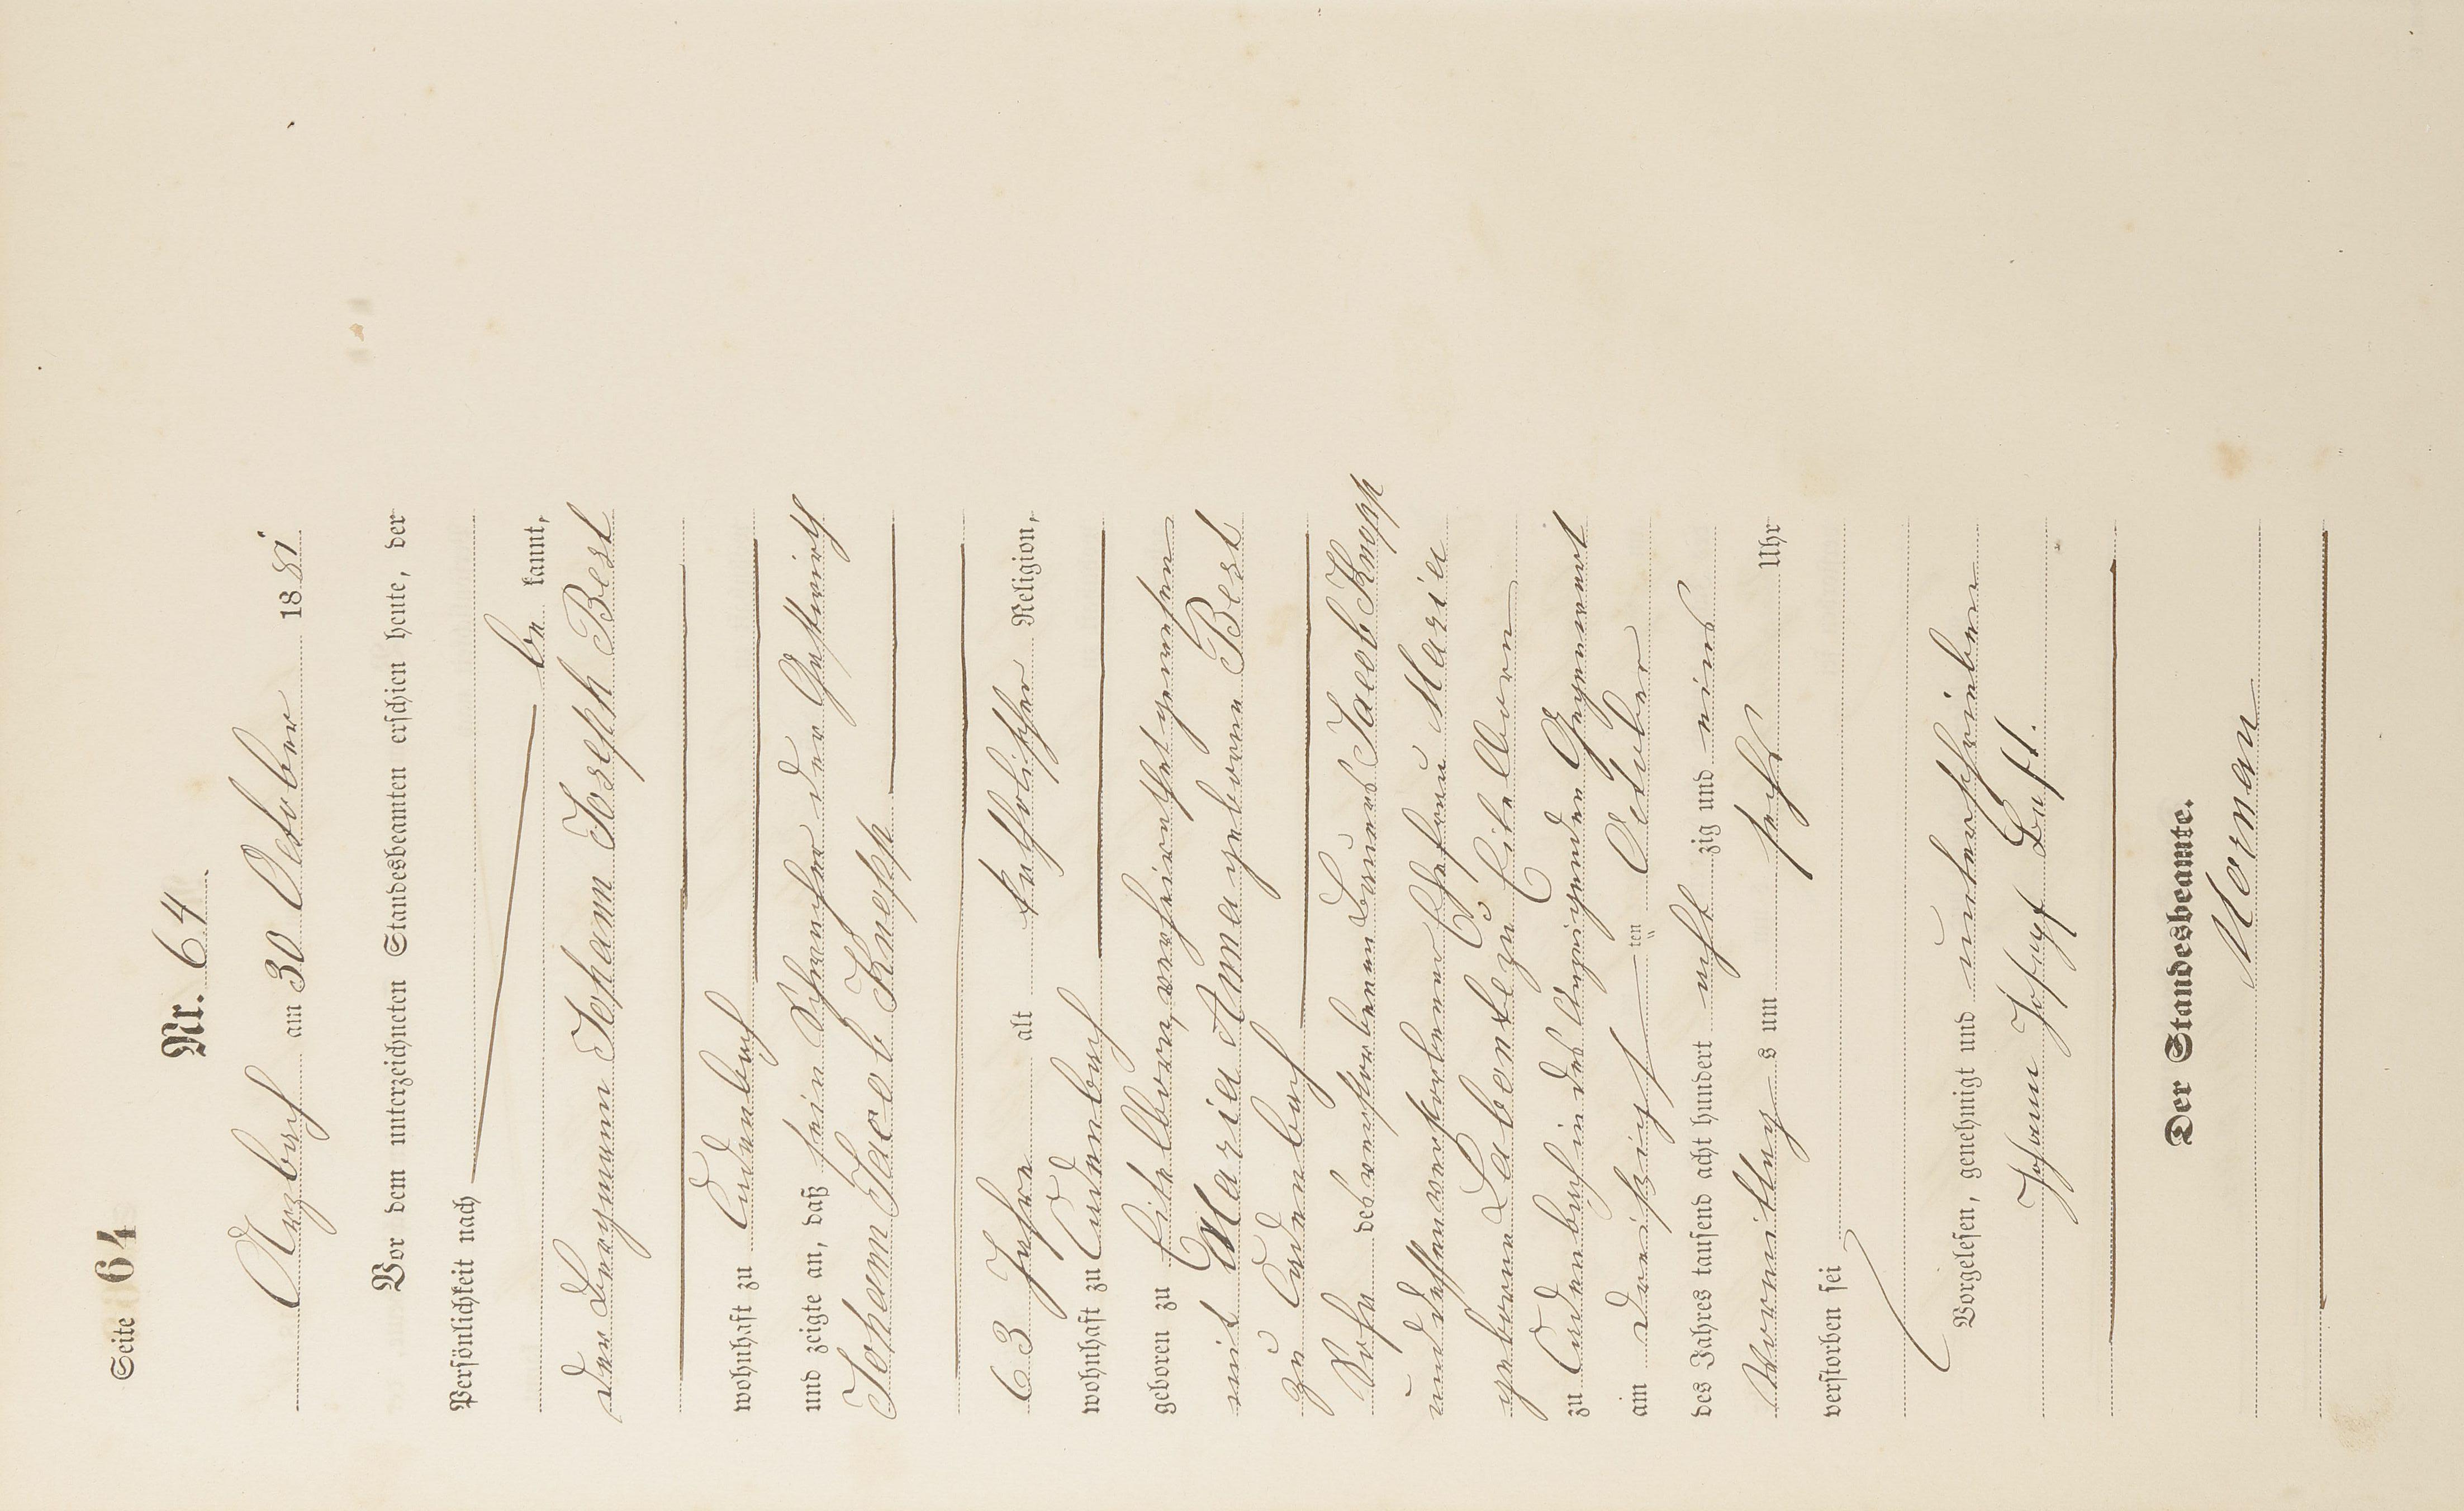 Seite 64
Nr. 64.
Arzbach am 30 October 1881
Vor dem unterzeichneten Standesbeamten erschien heute, der
Persönlichkeit nach
be kannt,
der Bergmann Johann Joseph Best
wohnhaft zu Cadenbach
und zeigte an, daß sein Schwager der Gastwirth
Johann Jacob Knopp
63 Jahre alt katholischer Religion,
wohnhaft zu Cadenbach
geboren zu Eitelborn, verheirathet gewesen
mit Maria Anna geborene Best
zu Cadenbach
Sohn des verstorbenen Bauers Jacob Knopp
und dessen verstorbenen Ehefrau Maria
geborene zu Eitelborn
zu Cadenbach in des Anzeigenden Gegenwart
am dreißigsten October
des Jahres tausend acht hundert acht zig und eins
Vormittags um sechs Uhr
verstorben sei
Vorgelesen, genehmigt und unterschrieben
Johann Joseph Best.
Der Standesbeamte.